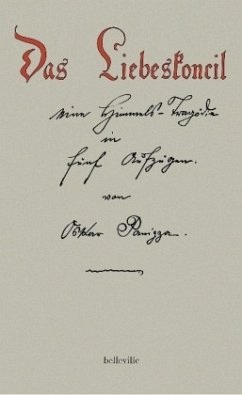 Das Liebeskoncil
eine Himmels-Tragödie
in
fünf Aufzügen.
von
Oskar Panizza.
belleville